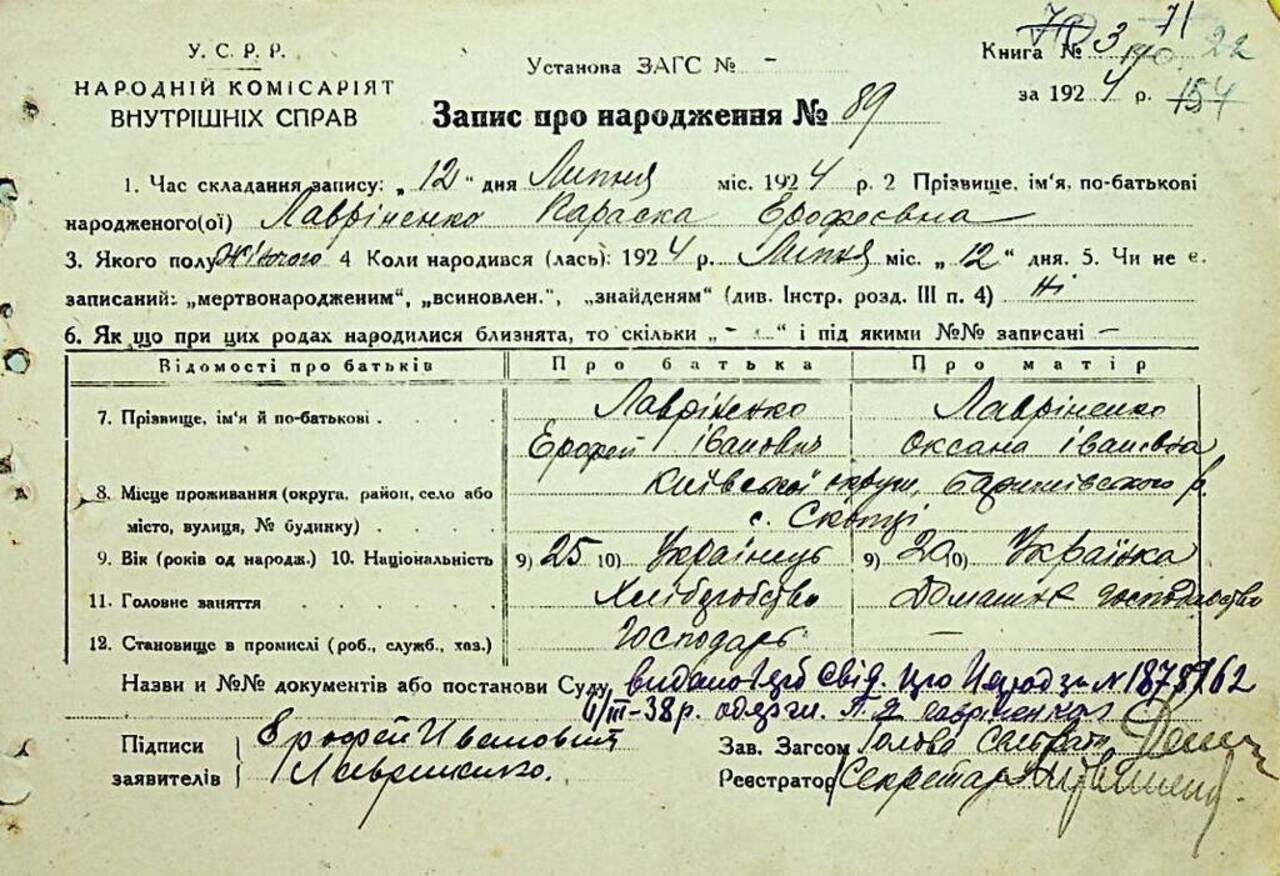 У. С. Р. Р.
НАРОДНІЙ КОМІСАРІЯТ
ВНУТРІШНІХ СПРАВ
Установа ЗАГС № -
Книга № 3 71 22
за 1924 р. 154
Запис про народження № 89
1. Час складання запису: „12" дня Липня міс. 1924 р. 2 Прізвище, ім'я, по-батькові
народженого(ої) Лавріненко Параска Ерофеєвна
3. Якого полу Жіночого 4 Коли народився (лась): 1924 р. Липня міс. „12" дня. 5. Чи не є
записаний: „мертвонародженим", „всиновлен.", „знайденям" (див. Інстр. розд. III п. 4) Ні
6. Як що при цих родах народилися близнята, то скільки „-" і під якими №№ записані —
Відомості про батьків Про батька Про матір
7. Прізвище, ім'я й по-батькові . . . . Лавріненко Лавріненко
Ерофей іванович Оксана івановна
8. Місце проживання (округа, район, село або Київської округи, Баришівського р.
місто, вулиця, № будинку) . . . . с. Скопці
9. Вік (років од народж.) 10. Національність 9) 25 10) Українець 9) 20 10) Українка
11. Головне заняття . . . . . . Хліборобство Домашнє господарство
12. Становище в промислі (роб., служб., хаз.) Господарь —
Назви и №№ документів або постанови Суду видано Свід. про народ за N
III-38 р.
Підписи Ерофей Иванович Зав. Загсом Голова Сельради
заявителів Реєстратор Секретар